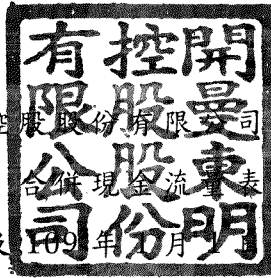 開曼東明
控股股份
有限公司
控股股份有限公司
合併現金流量表
109 年 1 月 1 日